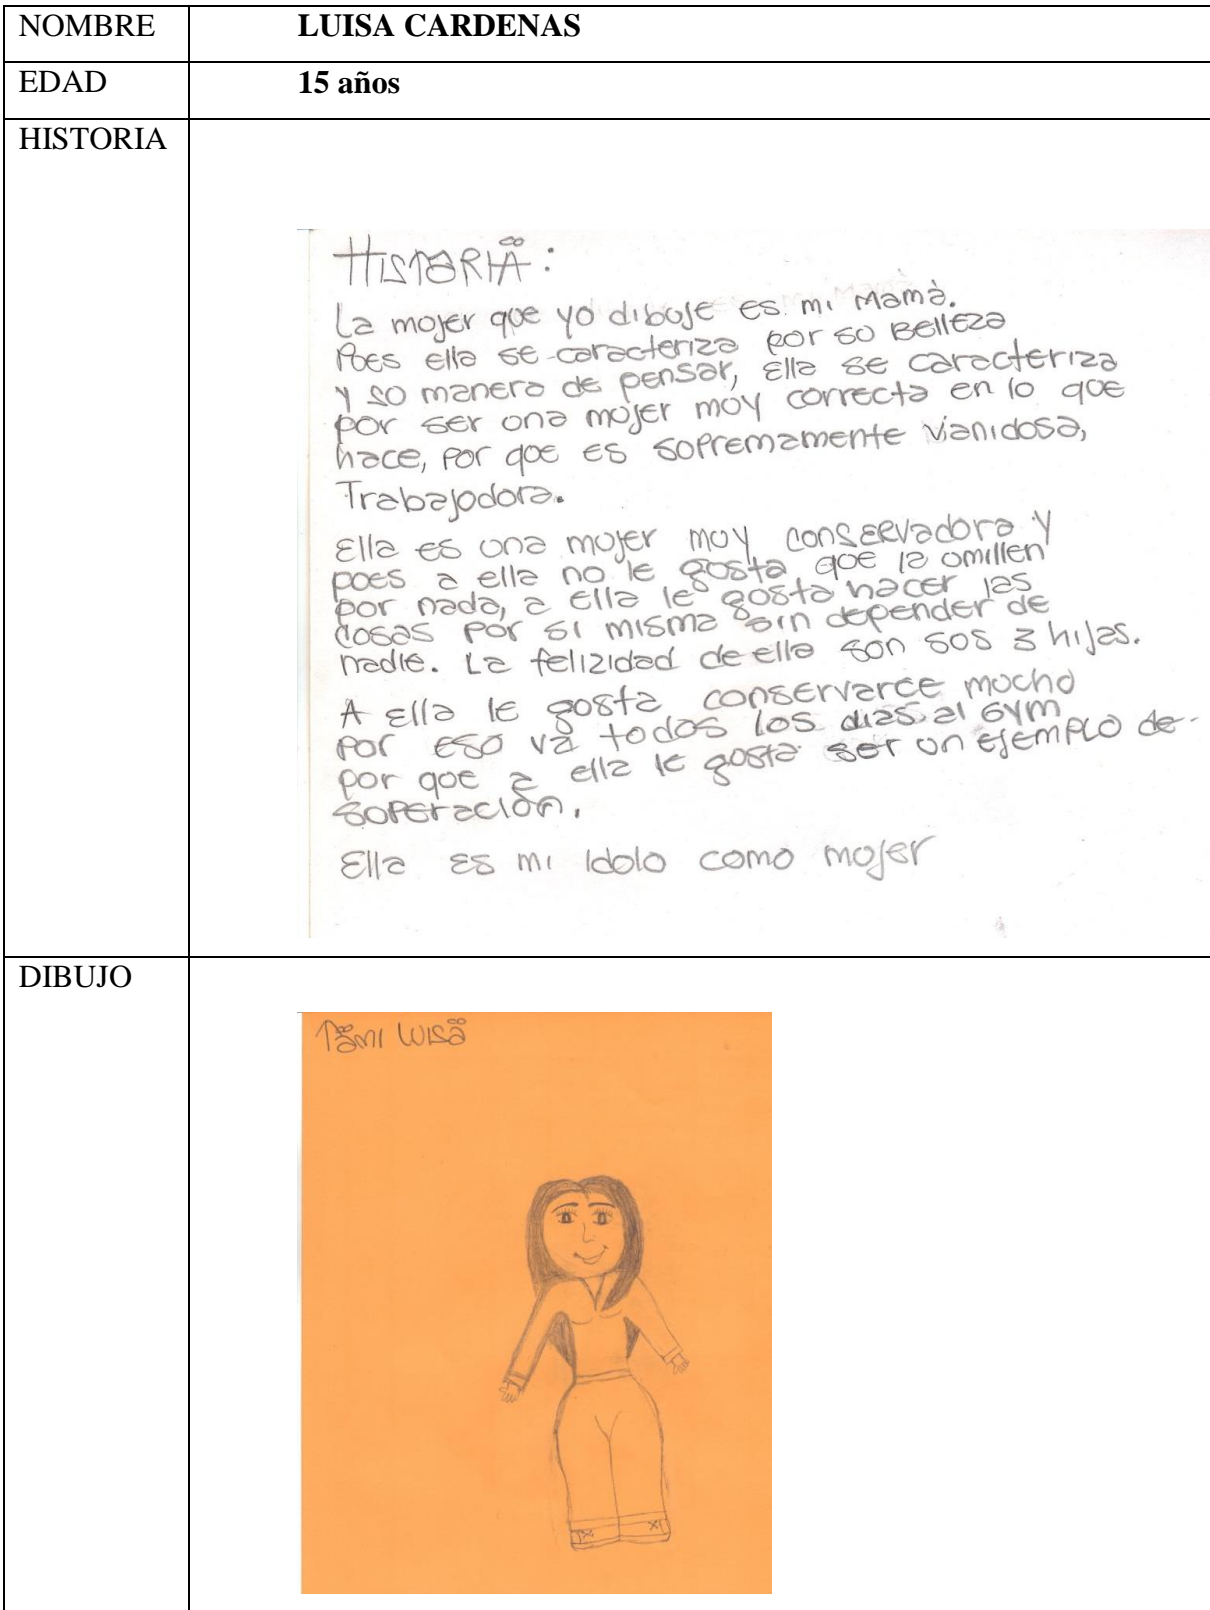 NOMBRE LUISA CARDENAS
EDAD 15 años
HISTORIA
HISTORIA:
La mujer que yo dibuje es mi Mamà.
Pues ella se caracteriza por su Belleza
y su manera de pensar, Ella se caracteriza
por ser una mujer muy correcta en lo que
hace, por que es supremamente vianidosa,
Trabajadora.
Ella es una mujer muy conservadora y
pues a ella no le gusta que la omillen
por nada, a Ella le gusta hacer las
cosas por si misma sin depender de
nadie. La felizidad de ella son sus 3 hijas.
A Ella le gusta conservarce mucho
por eso va todos los dias al Gym
por que a ella le gusta ser un ejemplo de-
superación.
Ella es mi Idolo como mujer
DIBUJO
Tami Luisa